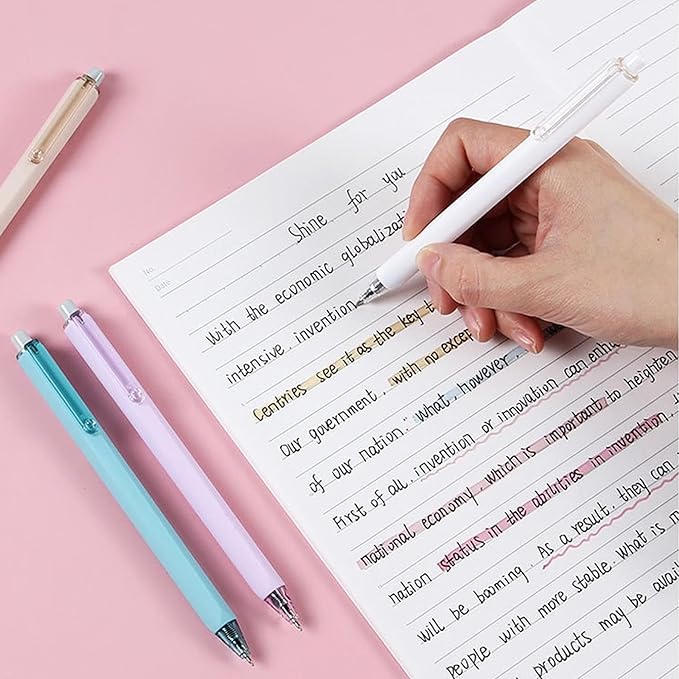 No.
Date
Shine for you
With the economic globalizati
intensive. invention
Centries see it as the key t
Our government. with no excep
of our nation. What however
First of all. invention or innovation can enha
national economy. which is important to heighten
nation status in the abilities in invention.
will be booming. As a result. they can
people with more stable. What is m
products may be avail